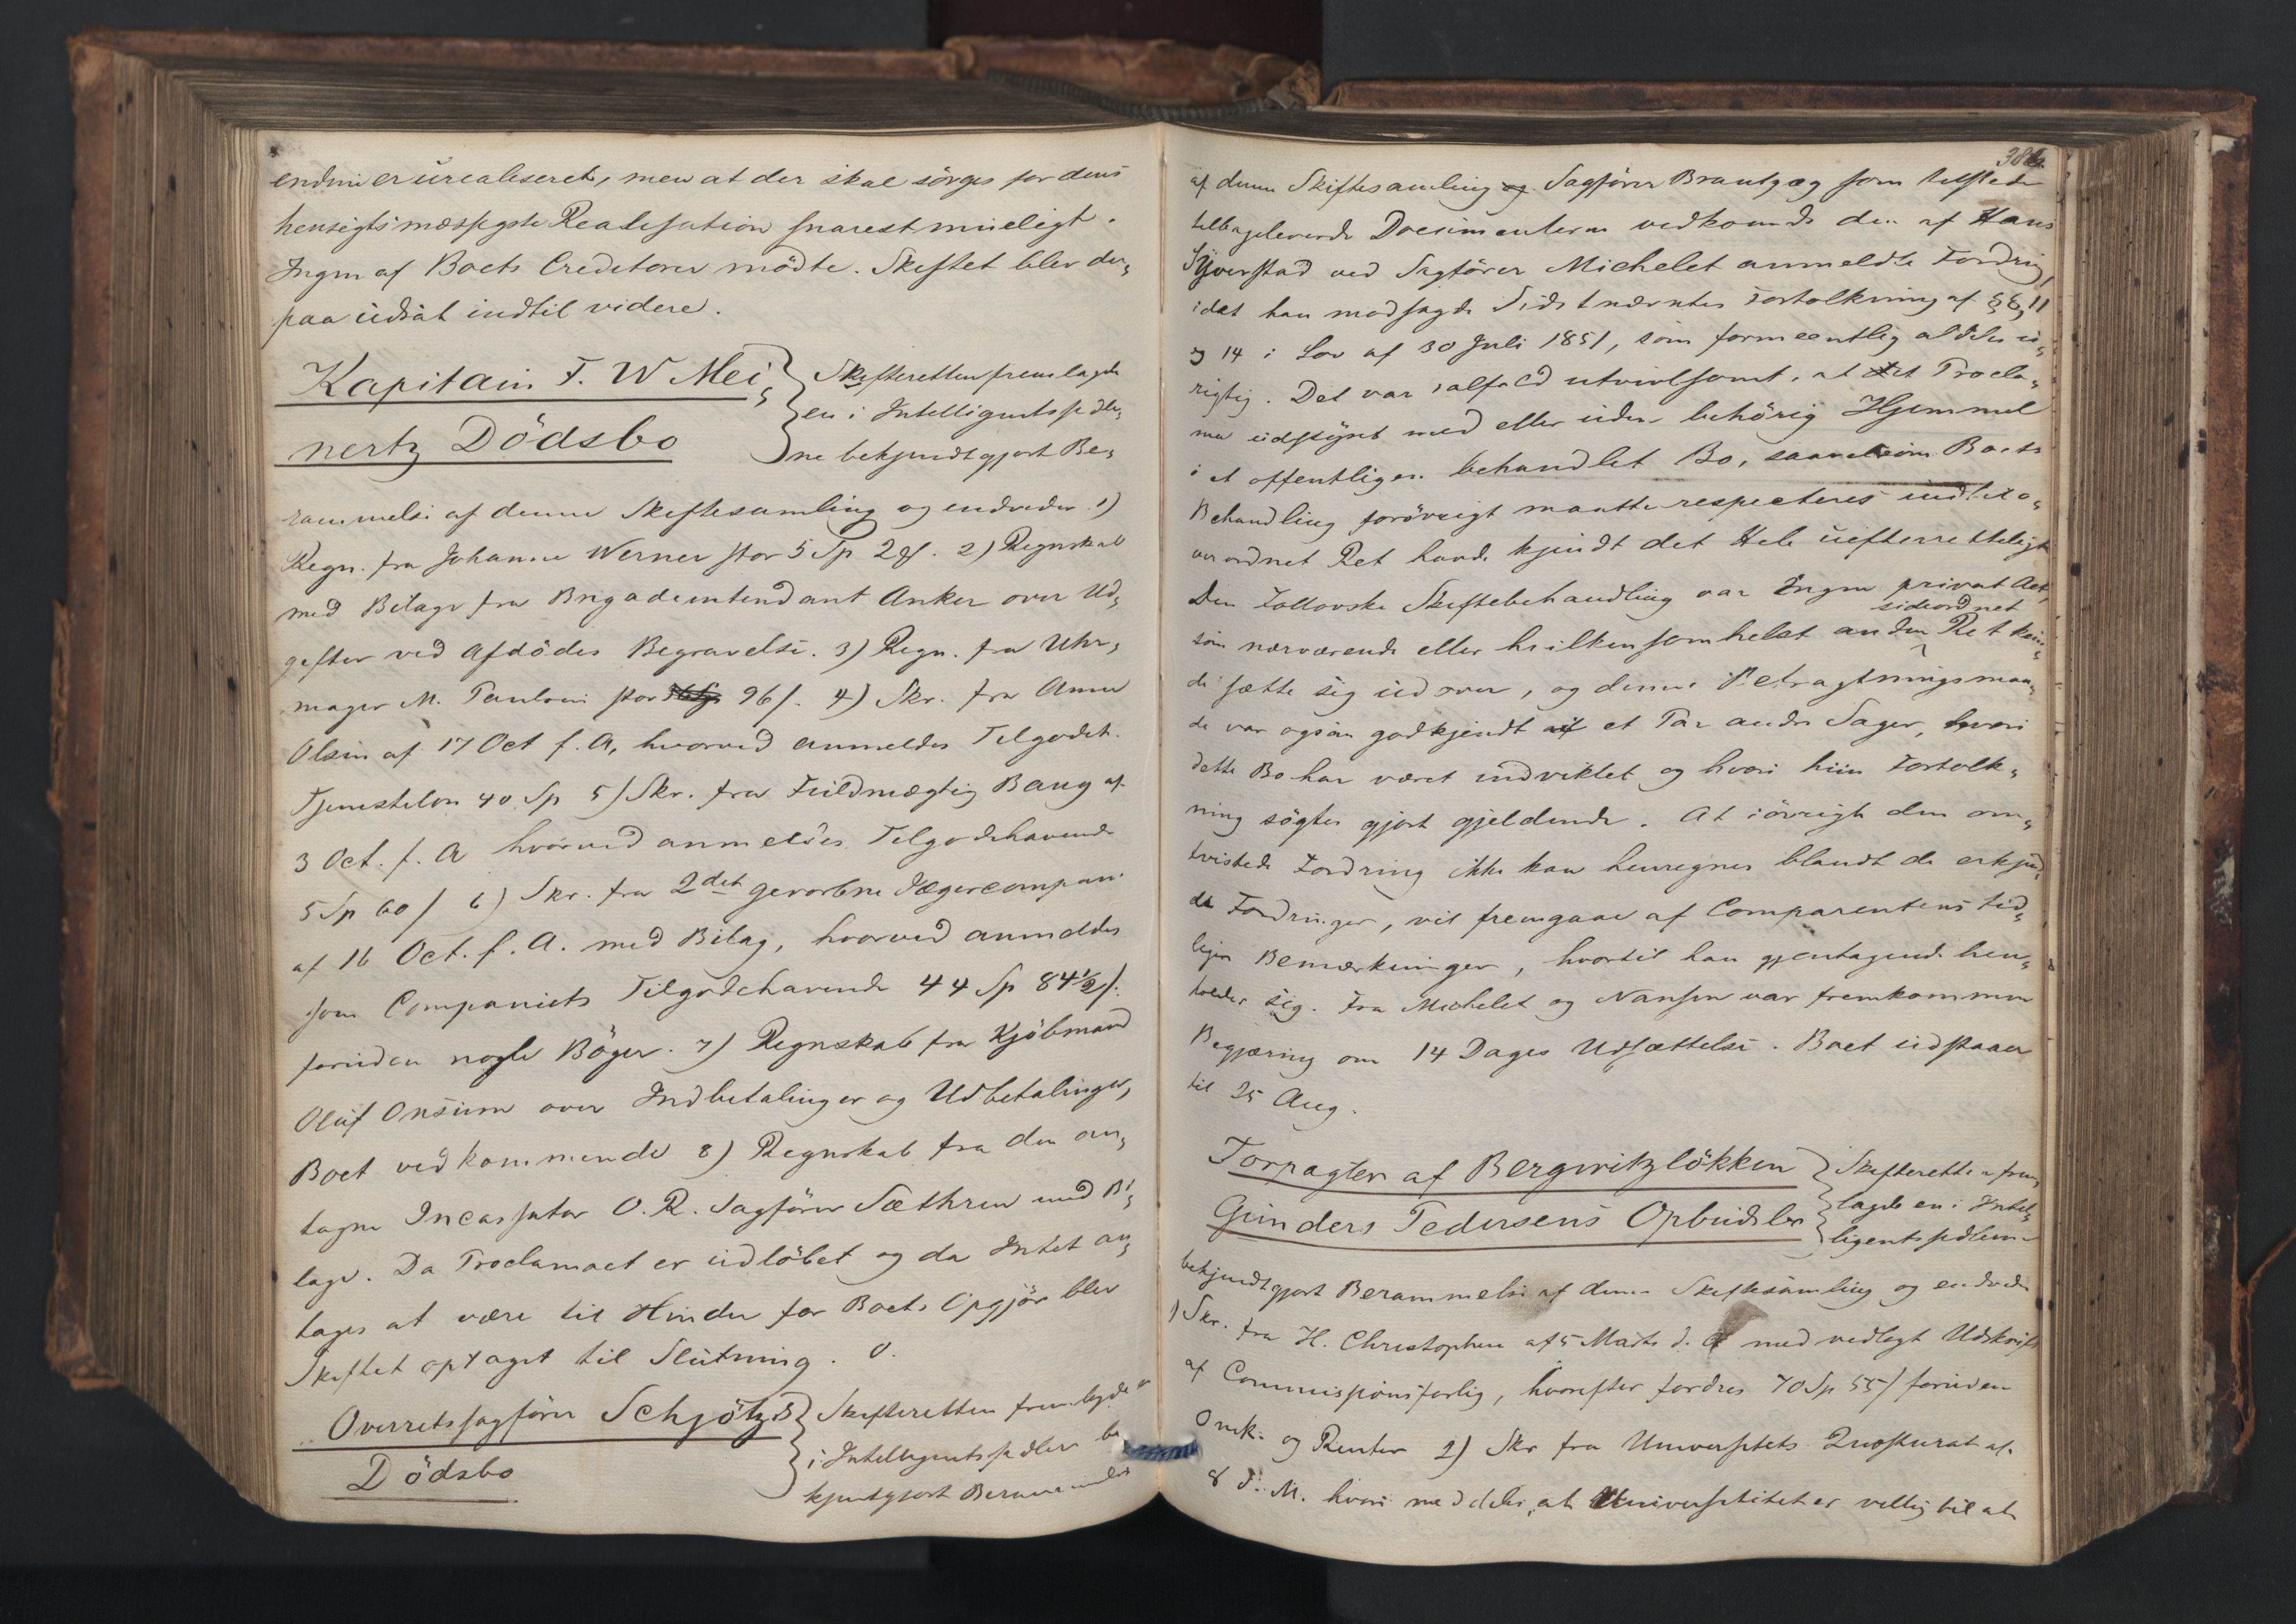 endnu er urealiseret, men at der skal sörges for dens
hensigtsmæssigste Realisation snarest mueligt.
Ingen af Boets Creditorer mödte. Skiftet blev der„
paa udsat indtil videre.
Kapitain F. W Mei„
nertz Dödsbo
Skifteretten fremlagde
en i Intelligentssedler„
ne bekjendtgjort Be„
rammelse af denne Skiftesamling og endvidere 1)
Regn. fra Johanne Werner stor 5 Sp 2 ß. 2) Regnskab
med Bilage fra Brigadeintendant Anker over Ud„
gifter ved Afdödes Begravelse. 3) Regn. fra Uhr„
mager M. Paulsen stor 96 ß. 4) Skr. fra Anne
Olsen af 17 Oct f. A, hvorved anmeldes Tilgodeh.
Tjenestelön 40 Sp 5) Skr. fra Fuldmægtig Bang af
3 Oct. f. A hvorved anmeldes Tilgodehavende
5 Sp 60 ß 6) Skr. fra 2det gevorbne Jægercompani
af 16 Oct. f. A. med Bilag, hvorved anmeldes
som Companiets Tilgodehavende 44 Sp 84½ ß.
foruden nogle Böger. 7) Regnskab fra Kjöbmand
Oluf Onsum over Indbetalinger og Udbetalinger,
Boet vedkommende 8) Regnskab fra den an„
tagne Incassator O. R. Sagförer Sæthren med Bi„
lage. Da Proclamaet er udlöbet og da Intet an„
tages at være til Hinder for Boets Opgjör blev
Skiftet optaget til Slutning.
Overretssagförer Schjötz's
Dödsbo
Skifteretten fremlagde en
i Intelligentssedlerne be
kjendtgjort Berammelse
386
af denne Skiftesamling og Sagförer som tilstede
tilbageleverede Documenterne vedkomde den af Hans
ved Sagförer Michelet anmeldte Fordring,
idet han modsagde Sidstnævntes Fortolkning af § 8, 11
og 14 i Lov af 30 Juli 1851, som formeentlig aldeles u„
rigtig. Det var ialfald utvivlsomt, at det Procla„
ma udstedt med eller uden behörig Hjemmel
i et offentligen behandlet Bo, saavelsom Boets
Behandling forövrigt maatte respecteres indtil o„
verordnet Ret havde kjendt det Hele uefterretteligt
Den Skiftebehandling var Ingen privat Act,
sideordnet
som nærværende eller hvilkensomhelst anden Ret kun„
de sætte sig ud over, og denne Betragtningsmaa„
de var ogsaa godkjendt af et Par andre Sager, hvori
dette Bo har været indviklet og hvori hiin Fortolk„
ning sögtes gjort gjeldende. At iövrigt den om„
tvistede Fordring ikke kan henregnes blandt de erkjend„
te Fordringer, vil fremgaae af Comparentens tid„
ligere Bemærkninger, hvortil han gjentagende hen„
holder sig. Fra Michelet og Nansen var fremkommen
Begjæring om 14 Dages Udsættelse. Boet udstaaer
til 25 Aug.
Forpagter af Bergwitzlökken
Gunder Pedersens Opbudsbo
Skifteretten frem„
lagde en i Intel„
ligentssedlerne
bekjendtgjort Berammelse af denne Skiftesamling og endvidere
1) Skr. fra H. Christophersen af 5 Marts d. A med vedlagt Udskrift
af Commissionsforlig, hvorefter fordres 70 Sp 55 ß foruden
Omk. og Renter 2) Skr fra Universitets Qvæsturat af
8 d. M. hvori meddeles, at Universitetet er villig til at